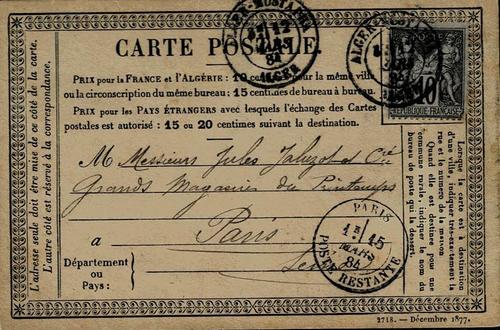 CARTE POSTALE.
PRIX pour la FRANCE et l'ALGÉRIE: 10 centimes pour la même ville
ou la circonscription du même bureau: 15 centimes de bureau à bureau.
PRIX pour les PAYS ÉTRANGERS avec lesquels l'échange des Cartes
postales est autorisé: 15 ou 20 centimes suivant la destination.
ALGER-MUSTAPHA
12
MARS
84
ALGER
ALGER-MUSTAPHA
10
REPUBLIQUE FRANÇAISE
M Messieurs Jules Jaluzot et Cie
Grands Magasins du Printemps
à Paris
Seine
Département
ou
Pays:
PARIS
15
MARS
84
POSTE RESTANTE
L'adresse seule doit être mise de ce côté de la carte.
L'autre côté est réservé à la correspondance.
Lorsque la carte est à destination
d'une ville, indiquer très-exactement la
rue et le numéro de la maison.
Quand elle est destinée pour une
commune rurale, indiquer le nom du
bureau de poste qui la dessert.
2718. — Décembre 1877.